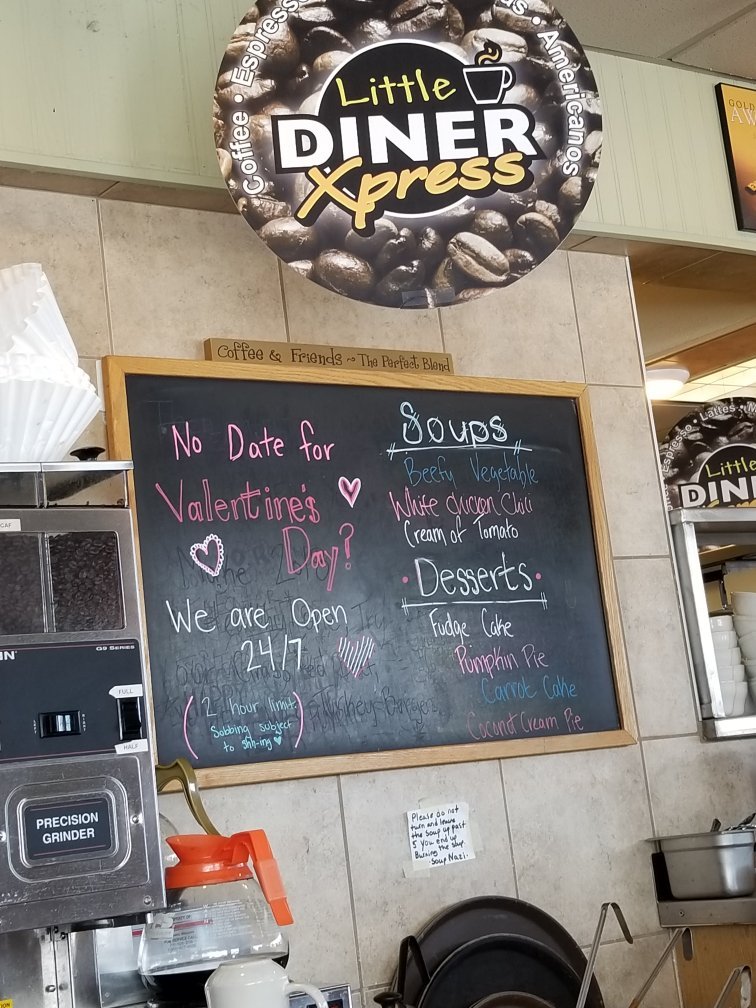 Coffee • Espresso
Americanos
Little
DINER
Xpress
GOLD
Coffee & Friends ~ The Perfect Blend
No Date for
Valentine's
Day?
We are Open
24/7
(2 hour limit
Sobbing subject
to shh-ing)
Soups
Beefy Vegetable
White chicken Chili
Cream of Tomato
• Desserts •
Fudge Cake
Pumpkin Pie
Carrot Cake
Coconut Cream Pie
Espresso • Lattes •
Little
DINE
G9 SERIES
FULL
HALF
PRECISION
GRINDER
Please do not
turn and leave
the soup up past
5 you end up
Burning the soup.
Soup Nazi.